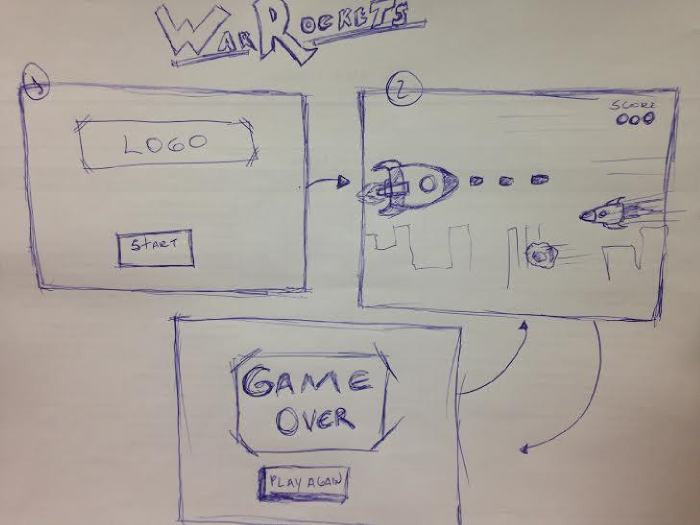 WAR ROCKETS
1
LOGO
START
2
SCORE
000
GAME
OVER
PLAY AGAIN